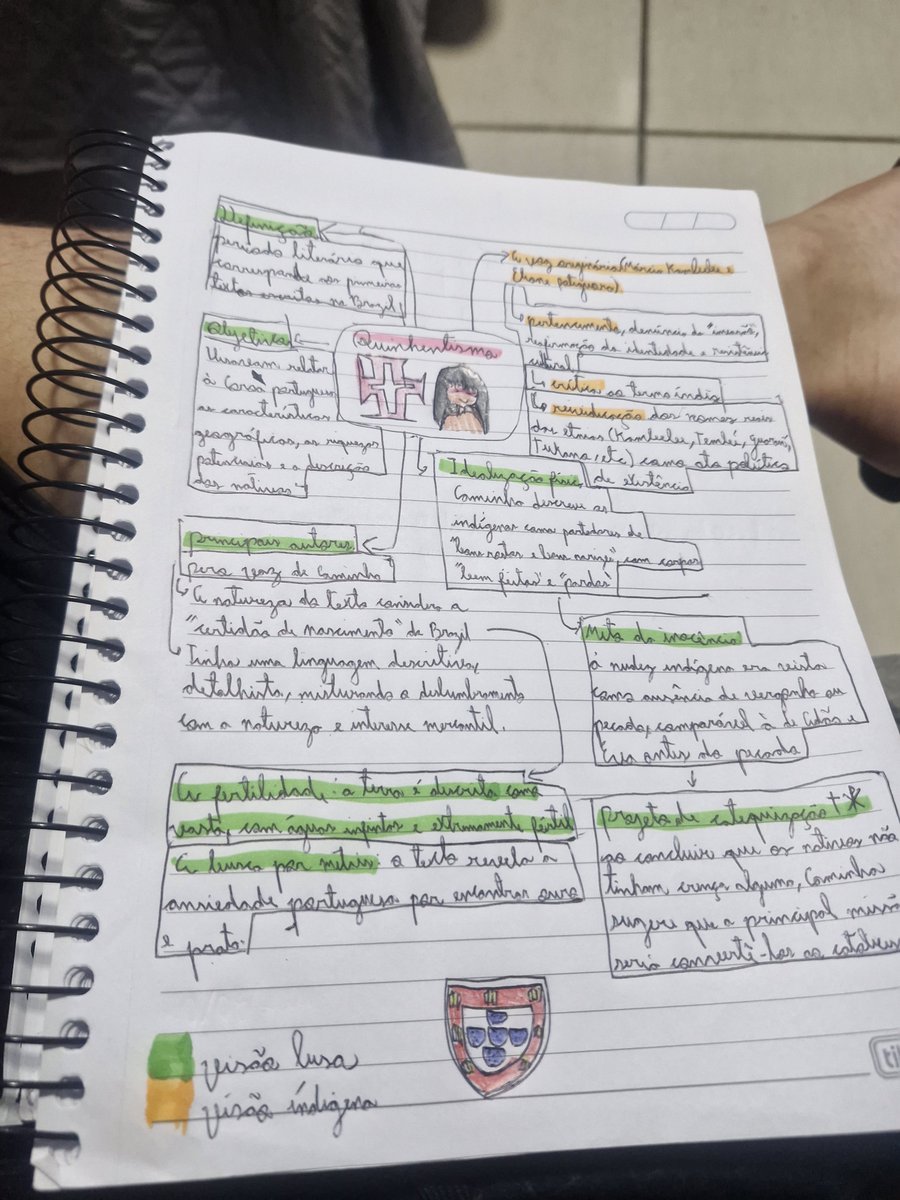 Quinhentismo
Definição
período literário que
corresponde aos primeiros
textos escritos no Brazil
Objetivos
Visavam relatar
à Coroa portuguesa
as características
geográficas, as riquezas
potenciais e a descrição
dos nativos.
principais autores
pero vaz de Caminha
A natureza do texto considera a
"certidão de nascimento" do Brazil
Tinha uma linguagem descritiva,
detalhista, misturando o deslumbramento
com a natureza e interesse mercantil.
A fertilidade: a terra é descrita como
vasta, com águas infinitas e extremamente fértil
A busca por metais: o texto revela a
ansiedade portuguesa por encontrar ouro
e prata.
A voz originária (Márcia Kambeba e
Eliane potiguara)
pertencimento, denúncia da "invasão",
reafirmação da identidade e resistência
cultural
crítica ao termo índio
reivindicação dos nomes reais
das etnias (Kambeba, Tembé, Guarani,
Tukano, etc) como ato político
de existência
Idealização física
Caminha descreve os
indígenas como portadores de
"bons rostos e bons narizes", com corpos
"bem feitos" e "pardos"
Mito da inocência
à nudez indígena era vista
como ausência de vergonha ou
pecado, comparável à de Adão e
Eva antes do pecado
projeto de catequização
ao concluir que os nativos não
tinham crença alguma, Caminha
sugere que a principal missão
seria convertê-los ao
visão lusa
visão índigena